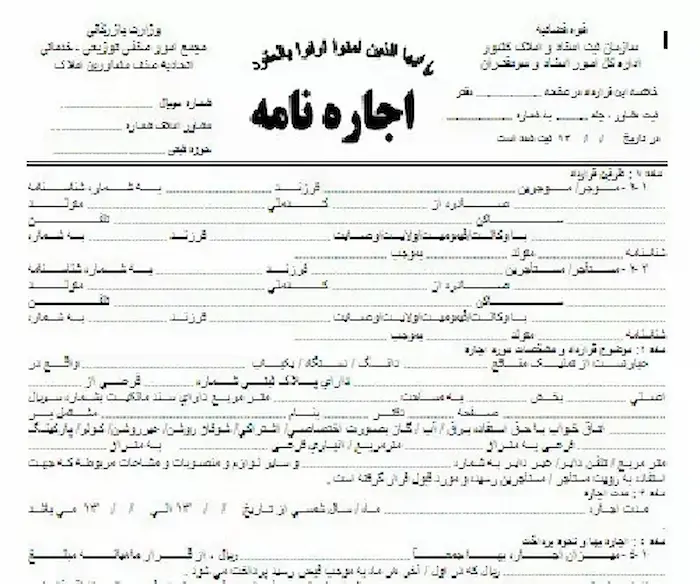 قوه قضاییه
سازمان ثبت اسناد و املاک کشور
اداره کل امور اسناد و سردفتران
خلاصه این قرارداد در صفحه ........ دفتر
ثبت مشاور ، جلد ........ به شماره ........
در تاریخ / / ۱۳ ثبت شده است
یا ایها الذین امنوا اوفوا بالعقود
اجاره نامه
وزارت بازرگانی
مجمع امور صنفی توزیعی - خدماتی
اتحادیه صنف مشاورین املاک
شماره سریال
مشاور املاک شماره
حوزه ثبتی
ماده ۱ : طرفین قرارداد
۱-۱ - موجر/ موجرین ........ فرزند ........ به شماره شناسنامه
........ صادره از ........ کدملی ........ متولد
........ ساکن ........ تلفن
........ با وکالت/قیمومیت/ولایت/وصایت ........ فرزند ........ به شماره
شناسنامه ........ متولد ........ بموجب ........
۱-۲ - مستأجر/ مستأجرین ........ فرزند ........ به شماره شناسنامه
........ صادره از ........ کدملی ........ متولد
........ ساکن ........ تلفن
........ با وکالت/قیمومیت/ولایت/وصایت ........ فرزند ........ به شماره
شناسنامه ........ متولد ........ بموجب ........
ماده ۲ : موضوع قرارداد و مشخصات مورد اجاره
عبارتست از تملیک منافع ........ دانگ / دستگاه / یکباب ........ واقع در
........ دارای پلاک ثبتی شماره ........ فرعی از ........
اصلی ........ بخش ........ به مساحت ........ متر مربع دارای سند مالکیت بشماره سریال
........ صفحه ........ دفتر ........ بنام ........ مشتمل بر
........ اتاق خواب با حق استفاده برق / آب / گاز بصورت اختصاصی/ اشتراکی/ شوفاژ روشن/ غیرروشن/ کولر/ پارکینگ
........ فرعی به متراژ ........ مترمربع / انباری فرعی ........ به متراژ ........
متر مربع / تلفن دایر/ غیر دایر به شماره ........ و سایر لوازم و منصوبات و مشاعات مربوطه که جهت
استفاده به رویت مستأجر / مستأجرین رسیده و مورد قبول قرار گرفته است .
ماده ۳ : مدت اجاره
مدت اجاره ........ ماه / سال شمسی از تاریخ / / ۱۳ الی / / ۱۳ می باشد
ماده ۴ : اجاره بها و نحوه پرداخت
۴-۱ - میزان اجاره بها جمعاً ........ ریال ، از قرار ماهیانه مبلغ
........ ریال که در اول / آخر هر ماه به موجب قبض رسید پرداخت می شود .